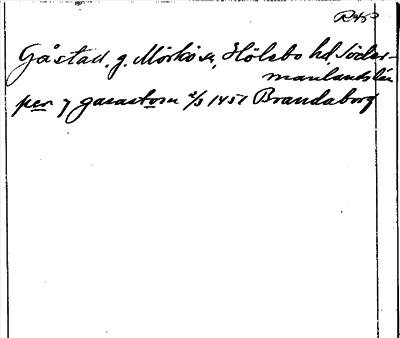 RAP
Gåstad, g. Mörkö sn, Hölebo hd, Söder-
manlands län
per j gasastom 2/3 1451 Brandaborg